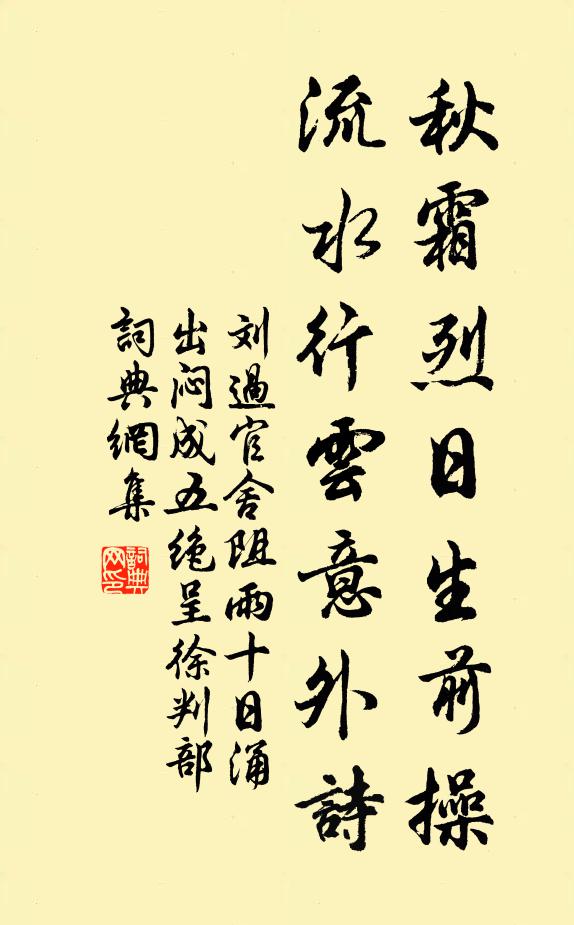 秋霜烈日生前操
流水行雲意外詩
刘過官舍阻雨十日涌
出闷成五绝呈徐判部
詞典網集
詞典
网印